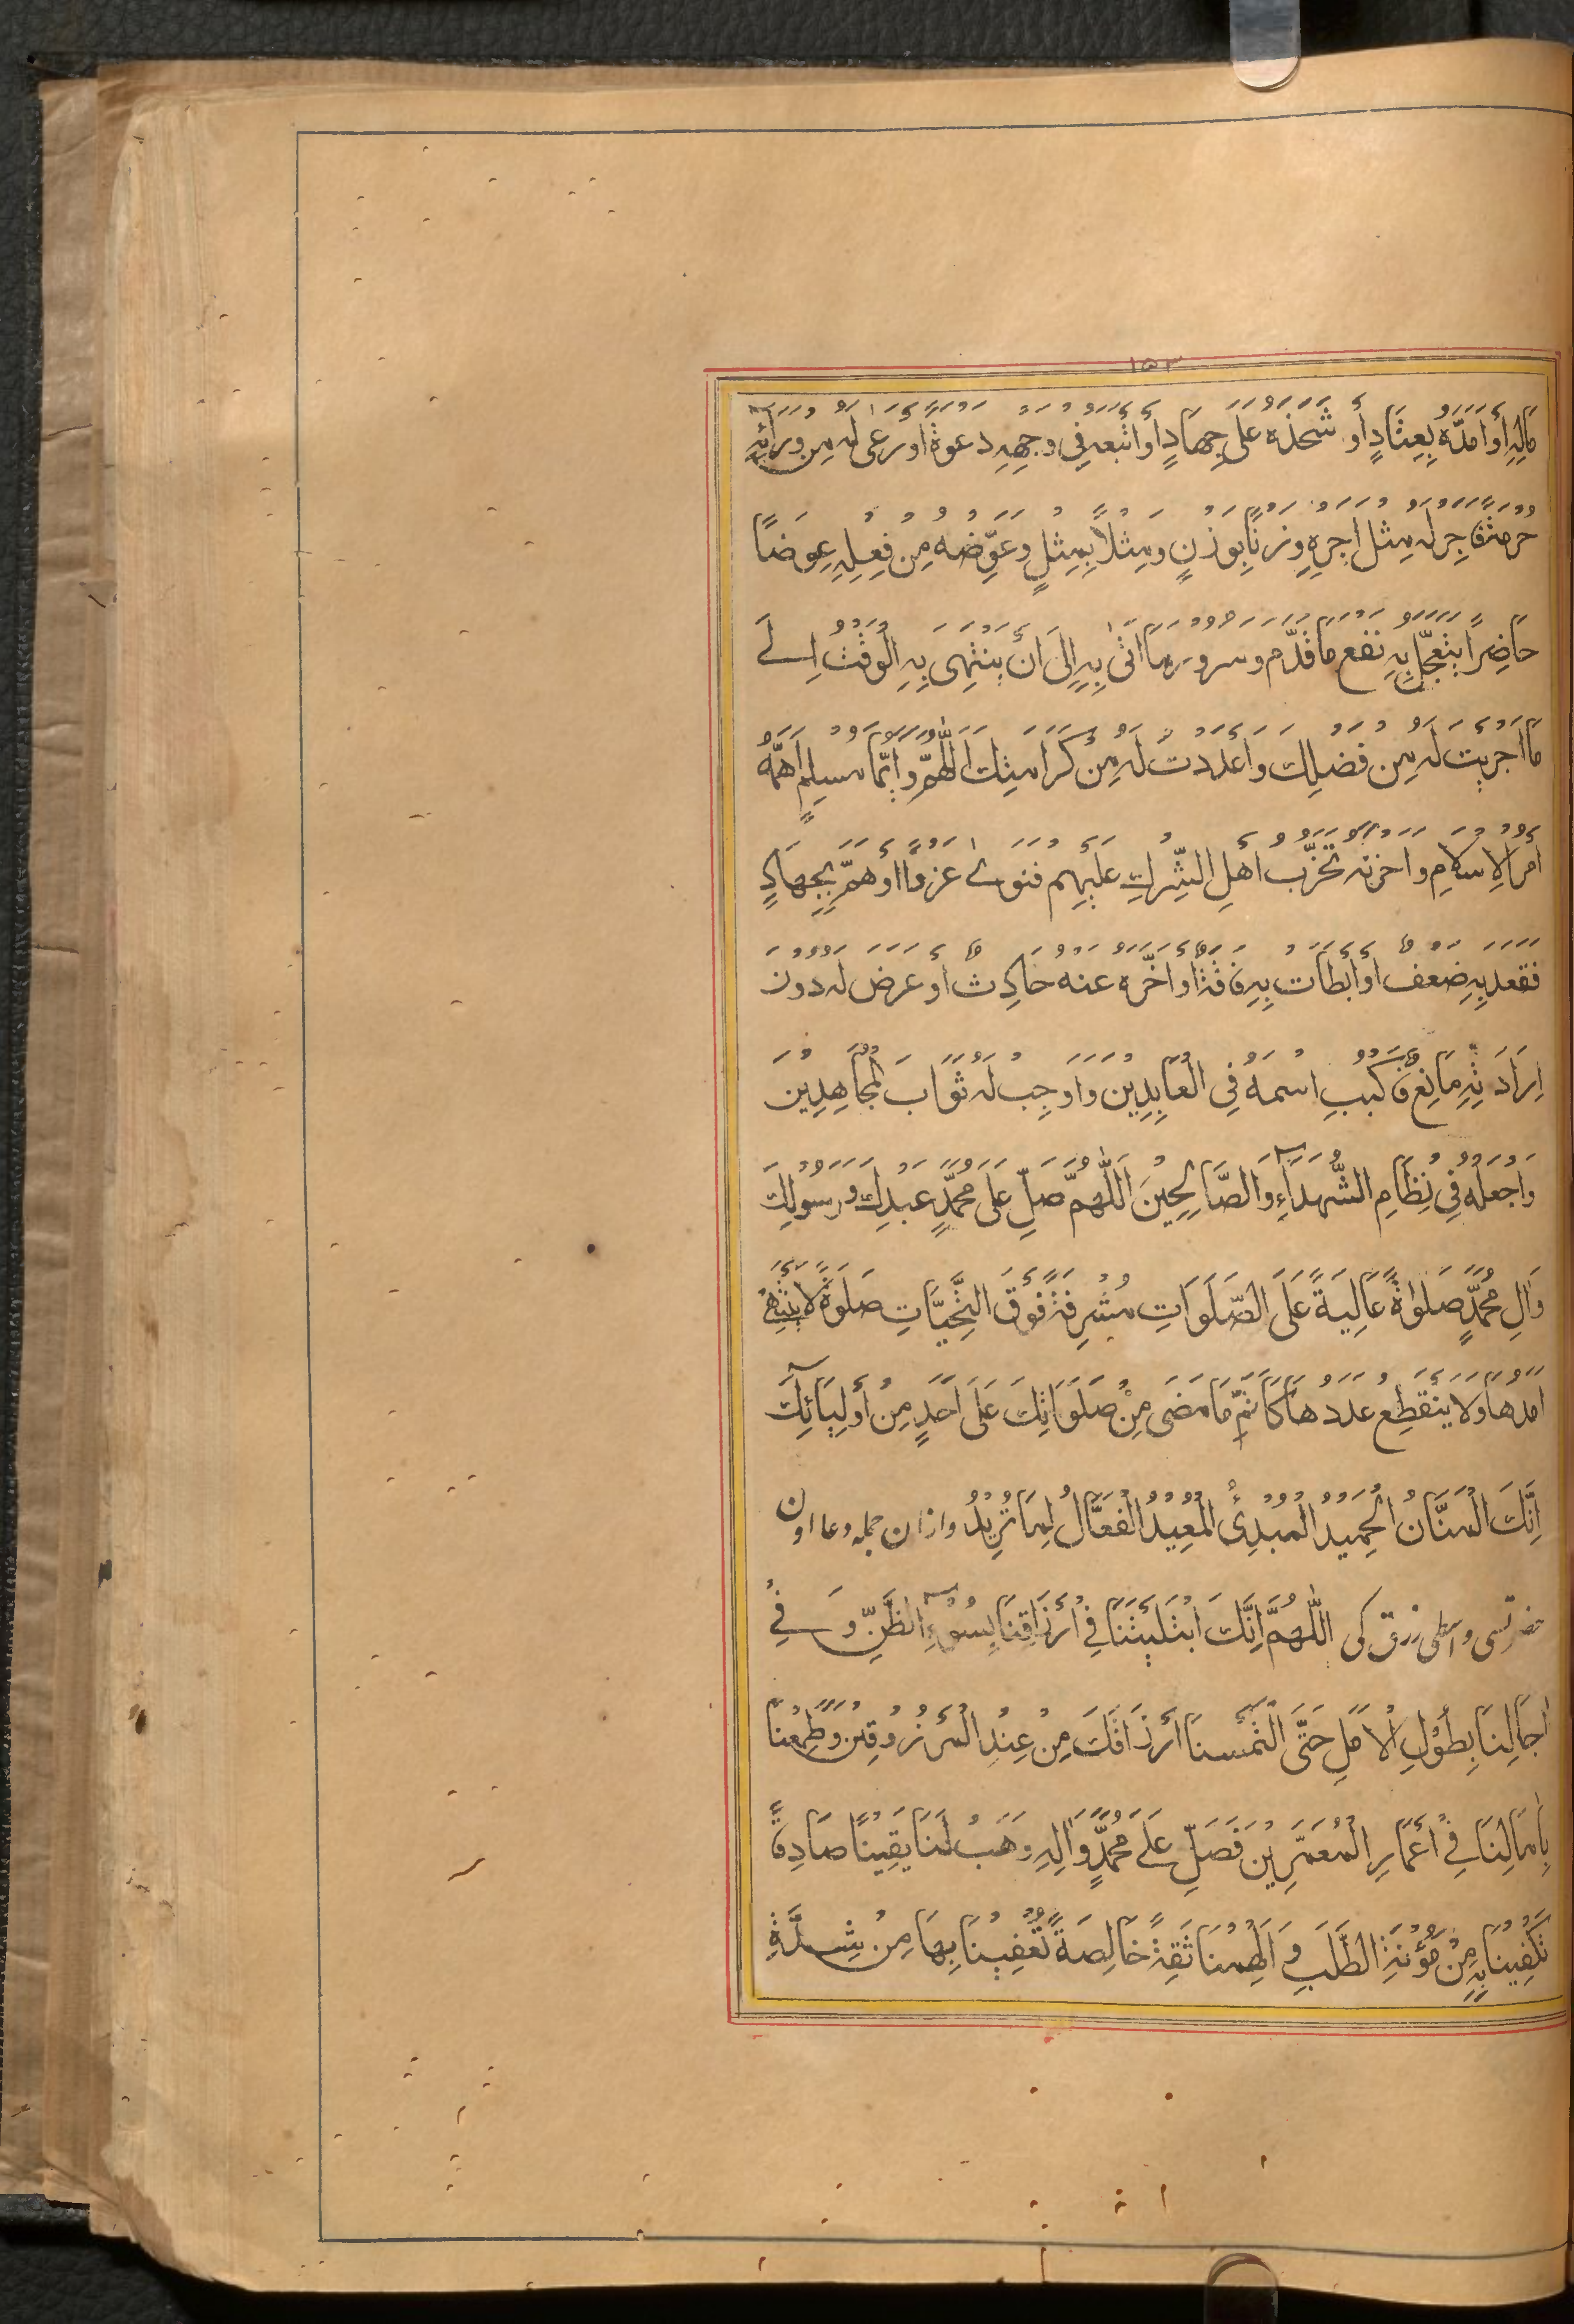 ۱۵۳
مَالِهِ أَوْ أَمَدَّهُ بِعِتَادٍ أَوْ شَحَذَهُ عَلَى جِهَادٍ أَوْ أَتْبَعَهُ فِي وَجْهِهِ دَعْوَةً أَوْ رَعَىٰ لَهُ مِنْ وَرَآئِهِ
حُرْمَةً فَاجِرْ لَهُ مِثْلَ أَجْرِهِ وَزْنًا بِوَزْنٍ وَمِثْلًا بِمِثْلٍ وَعَوِّضْهُ مِنْ فِعْلِهِ عِوَضًا
حَاضِرًا يَتَعَجَّلُ بِهِ نَفْعَ مَا قَدَّمَ وَسُرُورَ مَا أَتَىٰ بِهِ إِلَىٰ أَنْ يَنْتَهِيَ بِهِ الْوَقْتُ اِلَے
مَا أَجْرَيْتَ لَهُ مِنْ فَضْلِكَ وَأَعْدَدْتَ لَهُ مِنْ كَرَامَتِكَ اَللّٰهُمَّ وَأَيُّمَا مُسْلِمٍ أَهَمَّهُ
أَمْرُ الْإِسْلَامِ وَأَحْزَنَهُ تَحَزُّبُ أَهْلِ الشِّرْكِ عَلَيْهِمْ فَنَوَىٰ غَزْوًا أَوْ هَمَّ بِجِهَادٍ
فَقَعَدَ بِهِ ضَعْفٌ أَوْ أَبْطَأَتْ بِهِ فَاقَةٌ أَوْ أَخَّرَهُ عَنْهُ حَادِثٌ أَوْ عَرَضَ لَهُ دُونَ
اِرَادَتِهِ مَانِعٌ فَاكْتُبِ اسْمَهُ فِي الْعَابِدِيْنَ وَاَوْجِبْ لَهُ ثَوَابَ الْمُجَاهِدِيْنَ
وَاجْعَلْهُ فِي نِظَامِ الشُّهَدَآءِ وَالصَّالِحِيْنَ اَللّٰهُمَّ صَلِّ عَلَىٰ مُحَمَّدٍ عَبْدِكَ وَرَسُوْلِكَ
وَاٰلِ مُحَمَّدٍ صَلَوٰةً عَالِيَةً عَلَى الصَّلَوَاتِ مُشْرِفَةً فَوْقَ التَّحِيَّاتِ صَلَوٰةً لَا يَنْتَهِي
أَمَدُهَا وَلَا يَنْقَطِعُ عَدَدُهَا كَأَتَمِّ مَا مَضَى مِنْ صَلَوَاتِكَ عَلَى اَحَدٍ مِنْ أَوْلِيَآئِكَ
اِنَّكَ الْمَنَّانُ الْحَمِيْدُ الْمُبْدِئُ الْمُعِيْدُ الْفَعَّالُ لِمَا تُرِيْدُ وازان جملہ دعا اون
حضرتسی واسطی رزق کی اَللّٰهُمَّ اِنَّكَ ابْتَلَيْتَنَا فِي أَرْزَاقِنَا بِسُوْٓءِ الظَّنِّ وَفِي
اٰجَالِنَا بِطُوْلِ الْأَمَلِ حَتَّى الْتَمَسْنَا أَرْزَاقَكَ مِنْ عِنْدِ الْمَرْزُوْقِيْنَ وَطَمِعْنَا
بِاٰمَالِنَا فِي أَعْمَارِ الْمُعَمَّرِيْنَ فَصَلِّ عَلَے مُحَمَّدٍ وَّاٰلِهِ وَهَبْ لَنَا يَقِيْنًا صَادِقًا
تَكْفِيْنَا بِهِ مِنْ مَؤُنَةِ الطَّلَبِ وَاَلْهِمْنَا ثِقَةً خَالِصَةً تُعْفِيْنَا بِهَا مِنْ شِدَّةِ